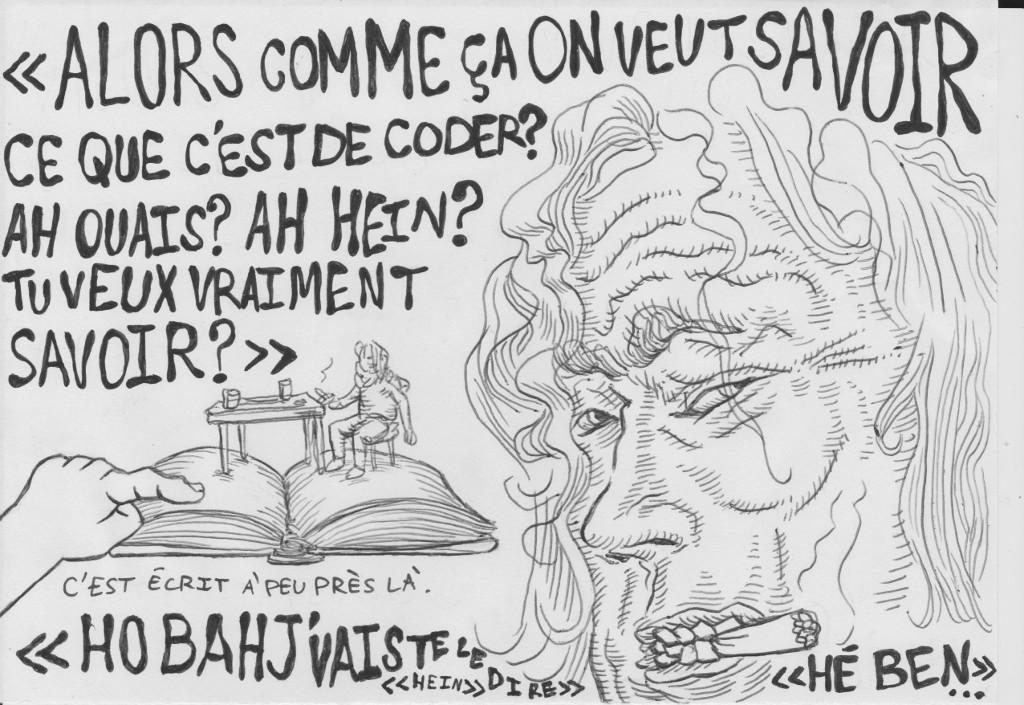 « ALORS COMME ÇA ON VEUT SAVOIR
CE QUE C'EST DE CODER?
AH OUAIS? AH HEIN?
TU VEUX VRAIMENT
SAVOIR? »
C'EST ÉCRIT À PEU PRÈS LÀ.
« HO BAH J'VAIS TE LE DIRE »
« HEIN »
« HÉ BEN... »